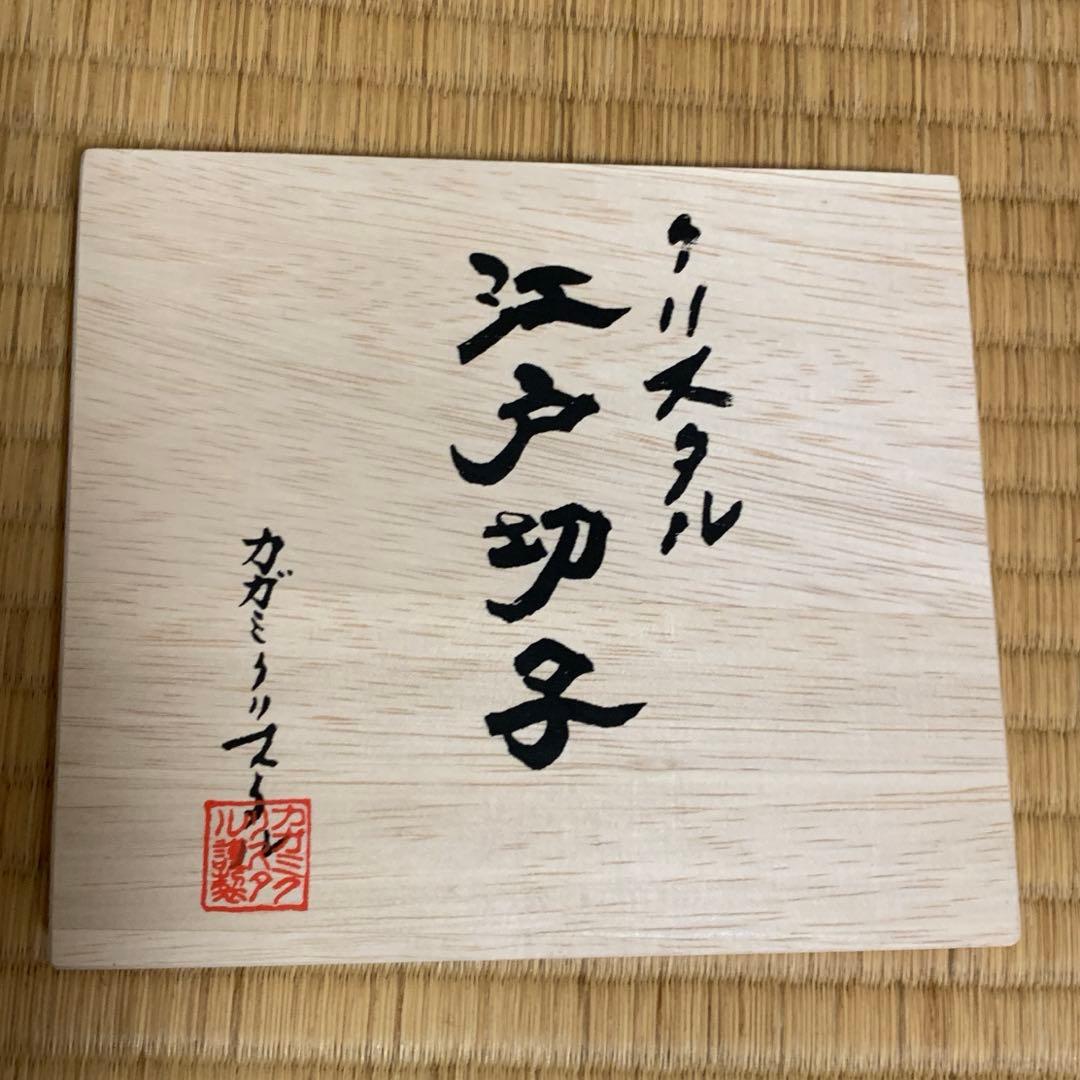 クリスタル
江戸切子
カガミクリスタル
カガミク
リスタ
ル謹製